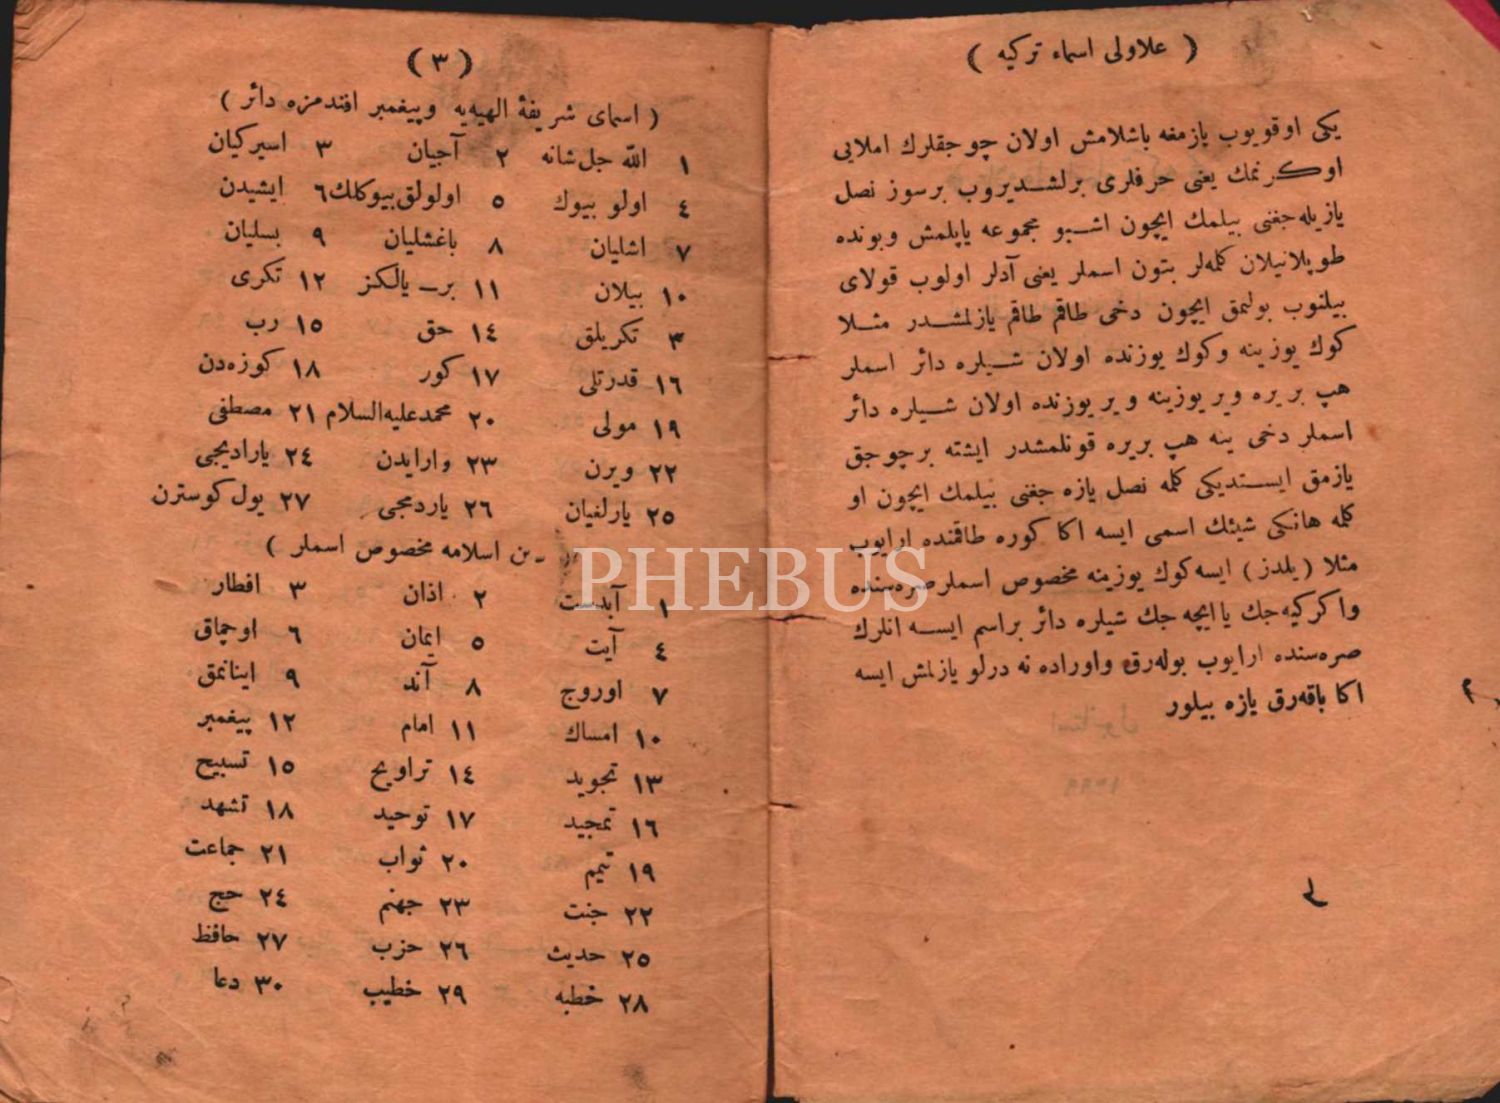 ( علاولى اسماء تركيه )
يكى اوقويوب يازمغه باشلامش اولان چوجقلرك املايى
اوكرنمك يعنى حرفلرى برلشديروب برسوز نصل
يازيله جغنى بيلمك ايچون اشبو مجموعه ياپلمش وبونده
طوپلانيلان كلمه‌لر بتون اسملر يعنى آدلر اولوب قولاى
بيلنوب بولنمق ايچون دخى طاقم طاقم يازلمشدر مثلا
كوك يوزينه وكوك يوزنده اولان شيلره دائر اسملر
هپ بريره وير يوزينه ويريوزنده اولان شيلره دائر
اسملر دخى ينه هپ بريره قونلمشدر ايشته برچوجق
يازمق ايستديكى كلمه نصل يازه جغنى بيلمك ايچون او
كلمه هانكى شيئك اسمى ايسه اكا كوره طاقمنده ارايوب
مثلا ( يلدز ) ايسه كوك يوزينه مخصوص اسملر صره‌سنده
واكر كيه‌جك ياايچه جك شيلره دائر براسم ايسه انلرك
صره‌سنده ارايوب بوله‌رق واوراده نه درلو يازلمش ايسه
اكا باقه‌رق يازه بيلور
( ٣ )
( اسماى شريفهٔ الهيه‌يه وپيغمبر افندمزه دائر )
١ الله جل شانه ٢ آجيان ٣ اسيركيان
٤ اولو بيوك ٥ اولولق بيوكلك ٦ ايشيدن
٧ اشليان ٨ باغشليان ٩ بسليان
١٠ بيلان ١١ بر ـ يالكز ١٢ تكرى
٣ تكريلق ١٤ حق ١٥ رب
١٦ قدرتلى ١٧ كور ١٨ كوزه‌دن
١٩ مولى ٢٠ محمد عليه السلام ٢١ مصطفى
٢٢ ويرن ٢٣ وارايدن ٢٤ ياراديجى
٢٥ يارلغيان ٢٦ ياردمجى ٢٧ يول كوسترن
ين اسلامه مخصوص اسملر )
١ آبدست ٢ اذان ٣ افطار
٤ آيت ٥ ايمان ٦ اوجماق
٧ اوروج ٨ آند ٩ اينانمق
١٠ امساك ١١ امام ١٢ پيغمبر
١٣ تجويد ١٤ تراويح ١٥ تسبيح
١٦ تمجيد ١٧ توحيد ١٨ تشهد
١٩ تيمم ٢٠ ثواب ٢١ جماعت
٢٢ جنت ٢٣ جهنم ٢٤ حج
٢٥ حديث ٢٦ حزب ٢٧ حافظ
٢٨ خطبه ٢٩ خطيب ٣٠ دعا
PHEBUS